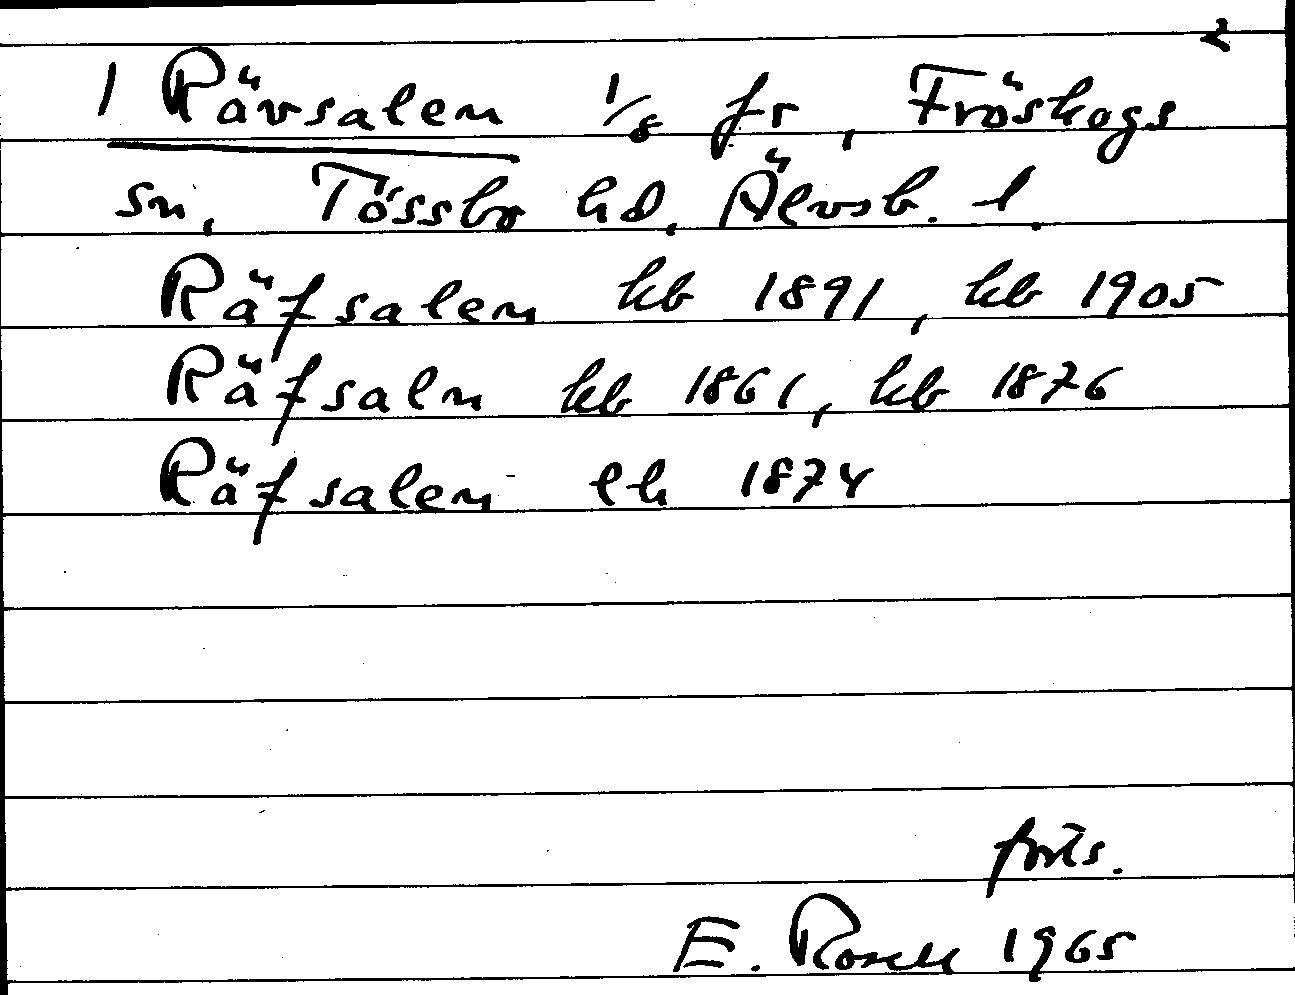 2
1 Rävsalen 1/8 fr, Fröskogs
sn, Tössbo hd, Älvsb. l.
Räfsalen kb 1891, kb 1905
Räfsaln kb 1861, kb 1876
Räfsalen lh 1874
forts.
E. Rosell 1965